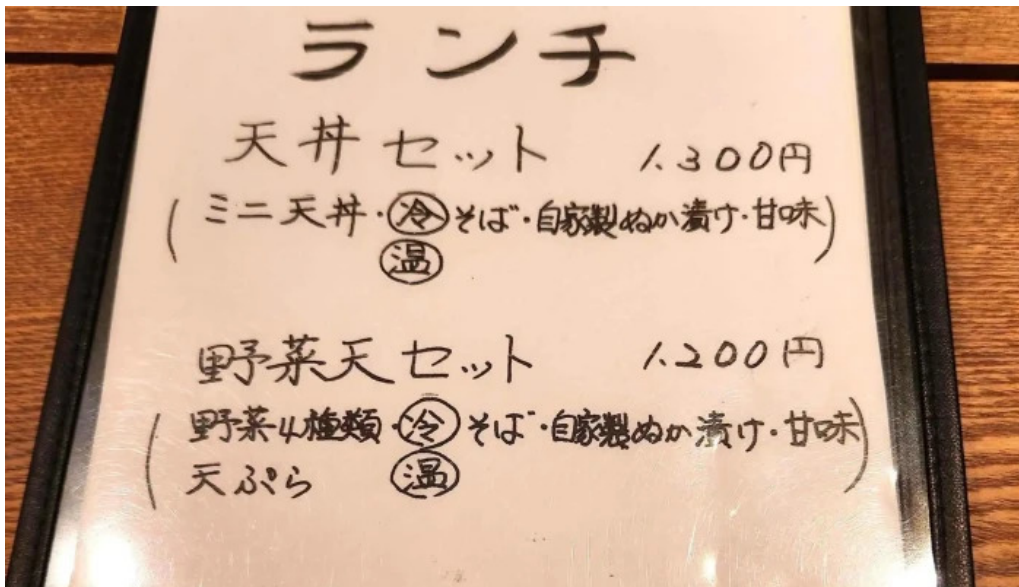 ランチ
天丼セット 1.300円
(ミニ天丼・㊗冷そば・自家製ぬか漬け・甘味)
温
野菜天セット 1.200円
(野菜4種類・冷そば・自家製ぬか漬け・甘味)
天ぷら 温